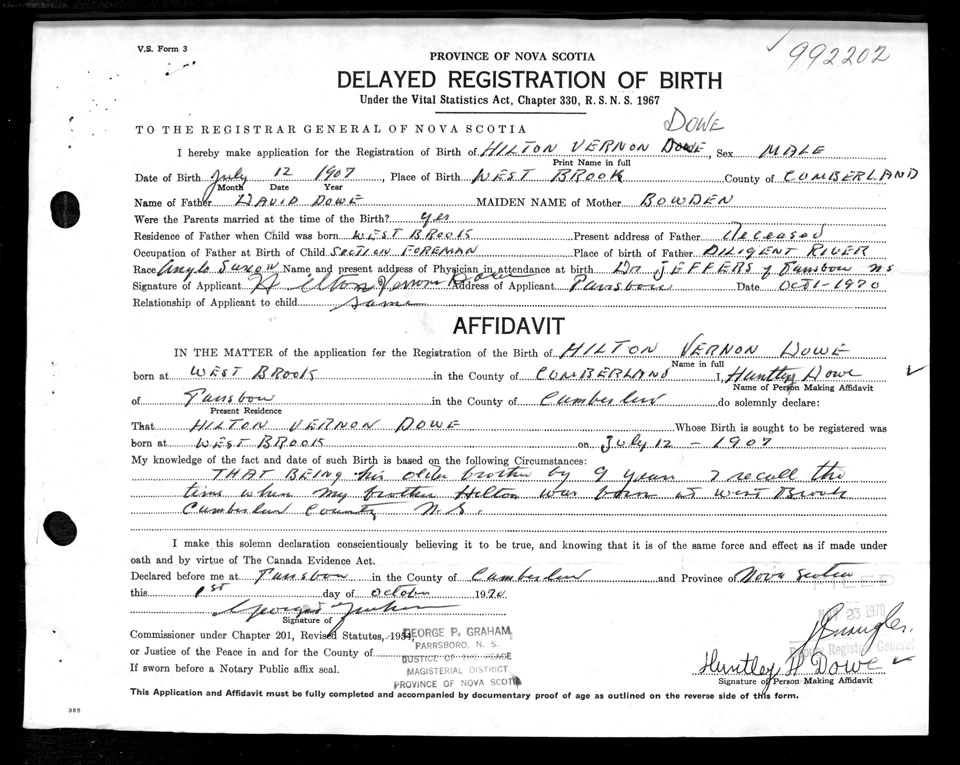 V.S. Form 3
992202
PROVINCE OF NOVA SCOTIA
DELAYED REGISTRATION OF BIRTH
Under the Vital Statistics Act, Chapter 330, R.S.N.S. 1967
DOWE
TO THE REGISTRAR GENERAL OF NOVA SCOTIA
I hereby make application for the Registration of Birth of HILTON VERNON DOWE, Sex MALE
Print Name in full
Date of Birth July 12 1907, Place of Birth WEST BROOK County of CUMBERLAND
Month Date Year
Name of Father DAVID DOWE MAIDEN NAME of Mother BOWDEN
Were the Parents married at the time of the Birth? yes
Residence of Father when Child was born WEST BROOK Present address of Father deceased
Occupation of Father at Birth of Child SECTION FOREMAN Place of birth of Father DILIGENT RIVER
Race Anglo Saxon Name and present address of Physician in attendance at birth Dr JEFFERS of Parrsboro NS
Signature of Applicant Hilton Vernon Dowe Address of Applicant Parrsboro Date Oct 1-1970
Relationship of Applicant to child same
AFFIDAVIT
IN THE MATTER of the application for the Registration of the Birth of HILTON VERNON DOWE
Name in full
born at WEST BROOK in the County of CUMBERLAND I, Huntley Dowe
Name of Person Making Affidavit
of Parrsboro in the County of Cumberland do solemnly declare:
Present Residence
That HILTON VERNON DOWE Whose Birth is sought to be registered was
born at WEST BROOK on July 12 - 1907
My knowledge of the fact and date of such Birth is based on the following Circumstances:
THAT BEING his older brother by 9 years I recall the
time when my brother Hilton was born at West Brook
Cumberland County N.S.
I make this solemn declaration conscientiously believing it to be true, and knowing that it is of the same force and effect as if made under
oath and by virtue of The Canada Evidence Act.
Declared before me at Parrsboro in the County of Cumberland and Province of Nova Scotia
this 1st day of October 1970
FILED
23 1970
Signature of
Commissioner under Chapter 201, Revised Statutes, 1954,
or Justice of the Peace in and for the County of
If sworn before a Notary Public affix seal.
GEORGE P. GRAHAM,
PARRSBORO, N. S.
JUSTICE OF THE PEACE
MAGISTERIAL DISTRICT
PROVINCE OF NOVA SCOTIA
Deputy Registrar General
Huntley H Dowe
Signature of Person Making Affidavit
This Application and Affidavit must be fully completed and accompanied by documentary proof of age as outlined on the reverse side of this form.
385